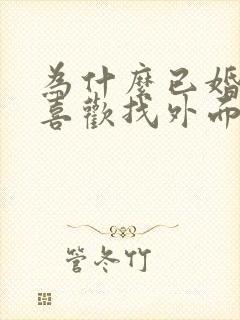 為什麼已婚
喜歡找外面
管冬竹